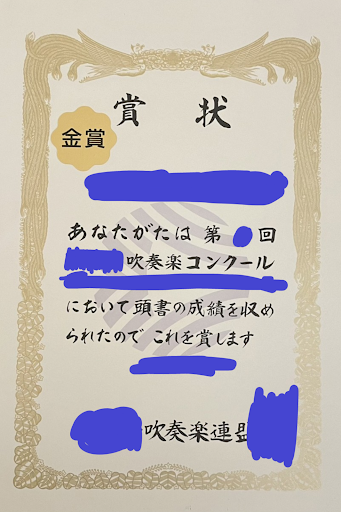 賞状
金賞
あなたがたは 第 回
吹奏楽コンクール
において頭書の成績を収め
られたので これを賞します
吹奏楽連盟